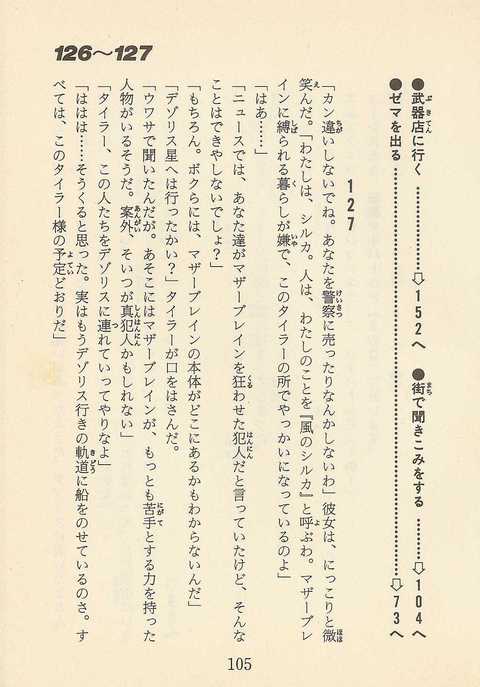 126〜127
●武器店に行く…………⇨152へ ●街で聞きこみをする……⇨104へ
●ゼマを出る……………………………………………⇨73へ
127
「カン違いしないでね。あなたを警察に売ったりなんかしないわ」彼女は、にっこりと微
笑んだ。「わたしは、シルカ。人は、わたしのことを『風のシルカ』と呼ぶわ。マザーブレ
インに縛られる暮らしが嫌で、このタイラーの所でやっかいになっているのよ」
「はあ……」
「ニュースでは、あなた達がマザーブレインを狂わせた犯人だと言っていたけど、そんな
ことはできやしないでしょ？」
「もちろん。ボクらには、マザーブレインの本体がどこにあるかもわからないんだ」
「デゾリス星へは行ったかい？」タイラーが口をはさんだ。
「ウワサで聞いたんだが。あそこにはマザーブレインが、もっとも苦手とする力を持った
人物がいるそうだ。案外、そいつが真犯人かもしれない」
「タイラー、この人たちをデゾリスに連れていってやりなよ」
「ははは……そうくると思った。実はもうデゾリス行きの軌道に船をのせているのさ。す
べては、このタイラー様の予定どおりだ」
105